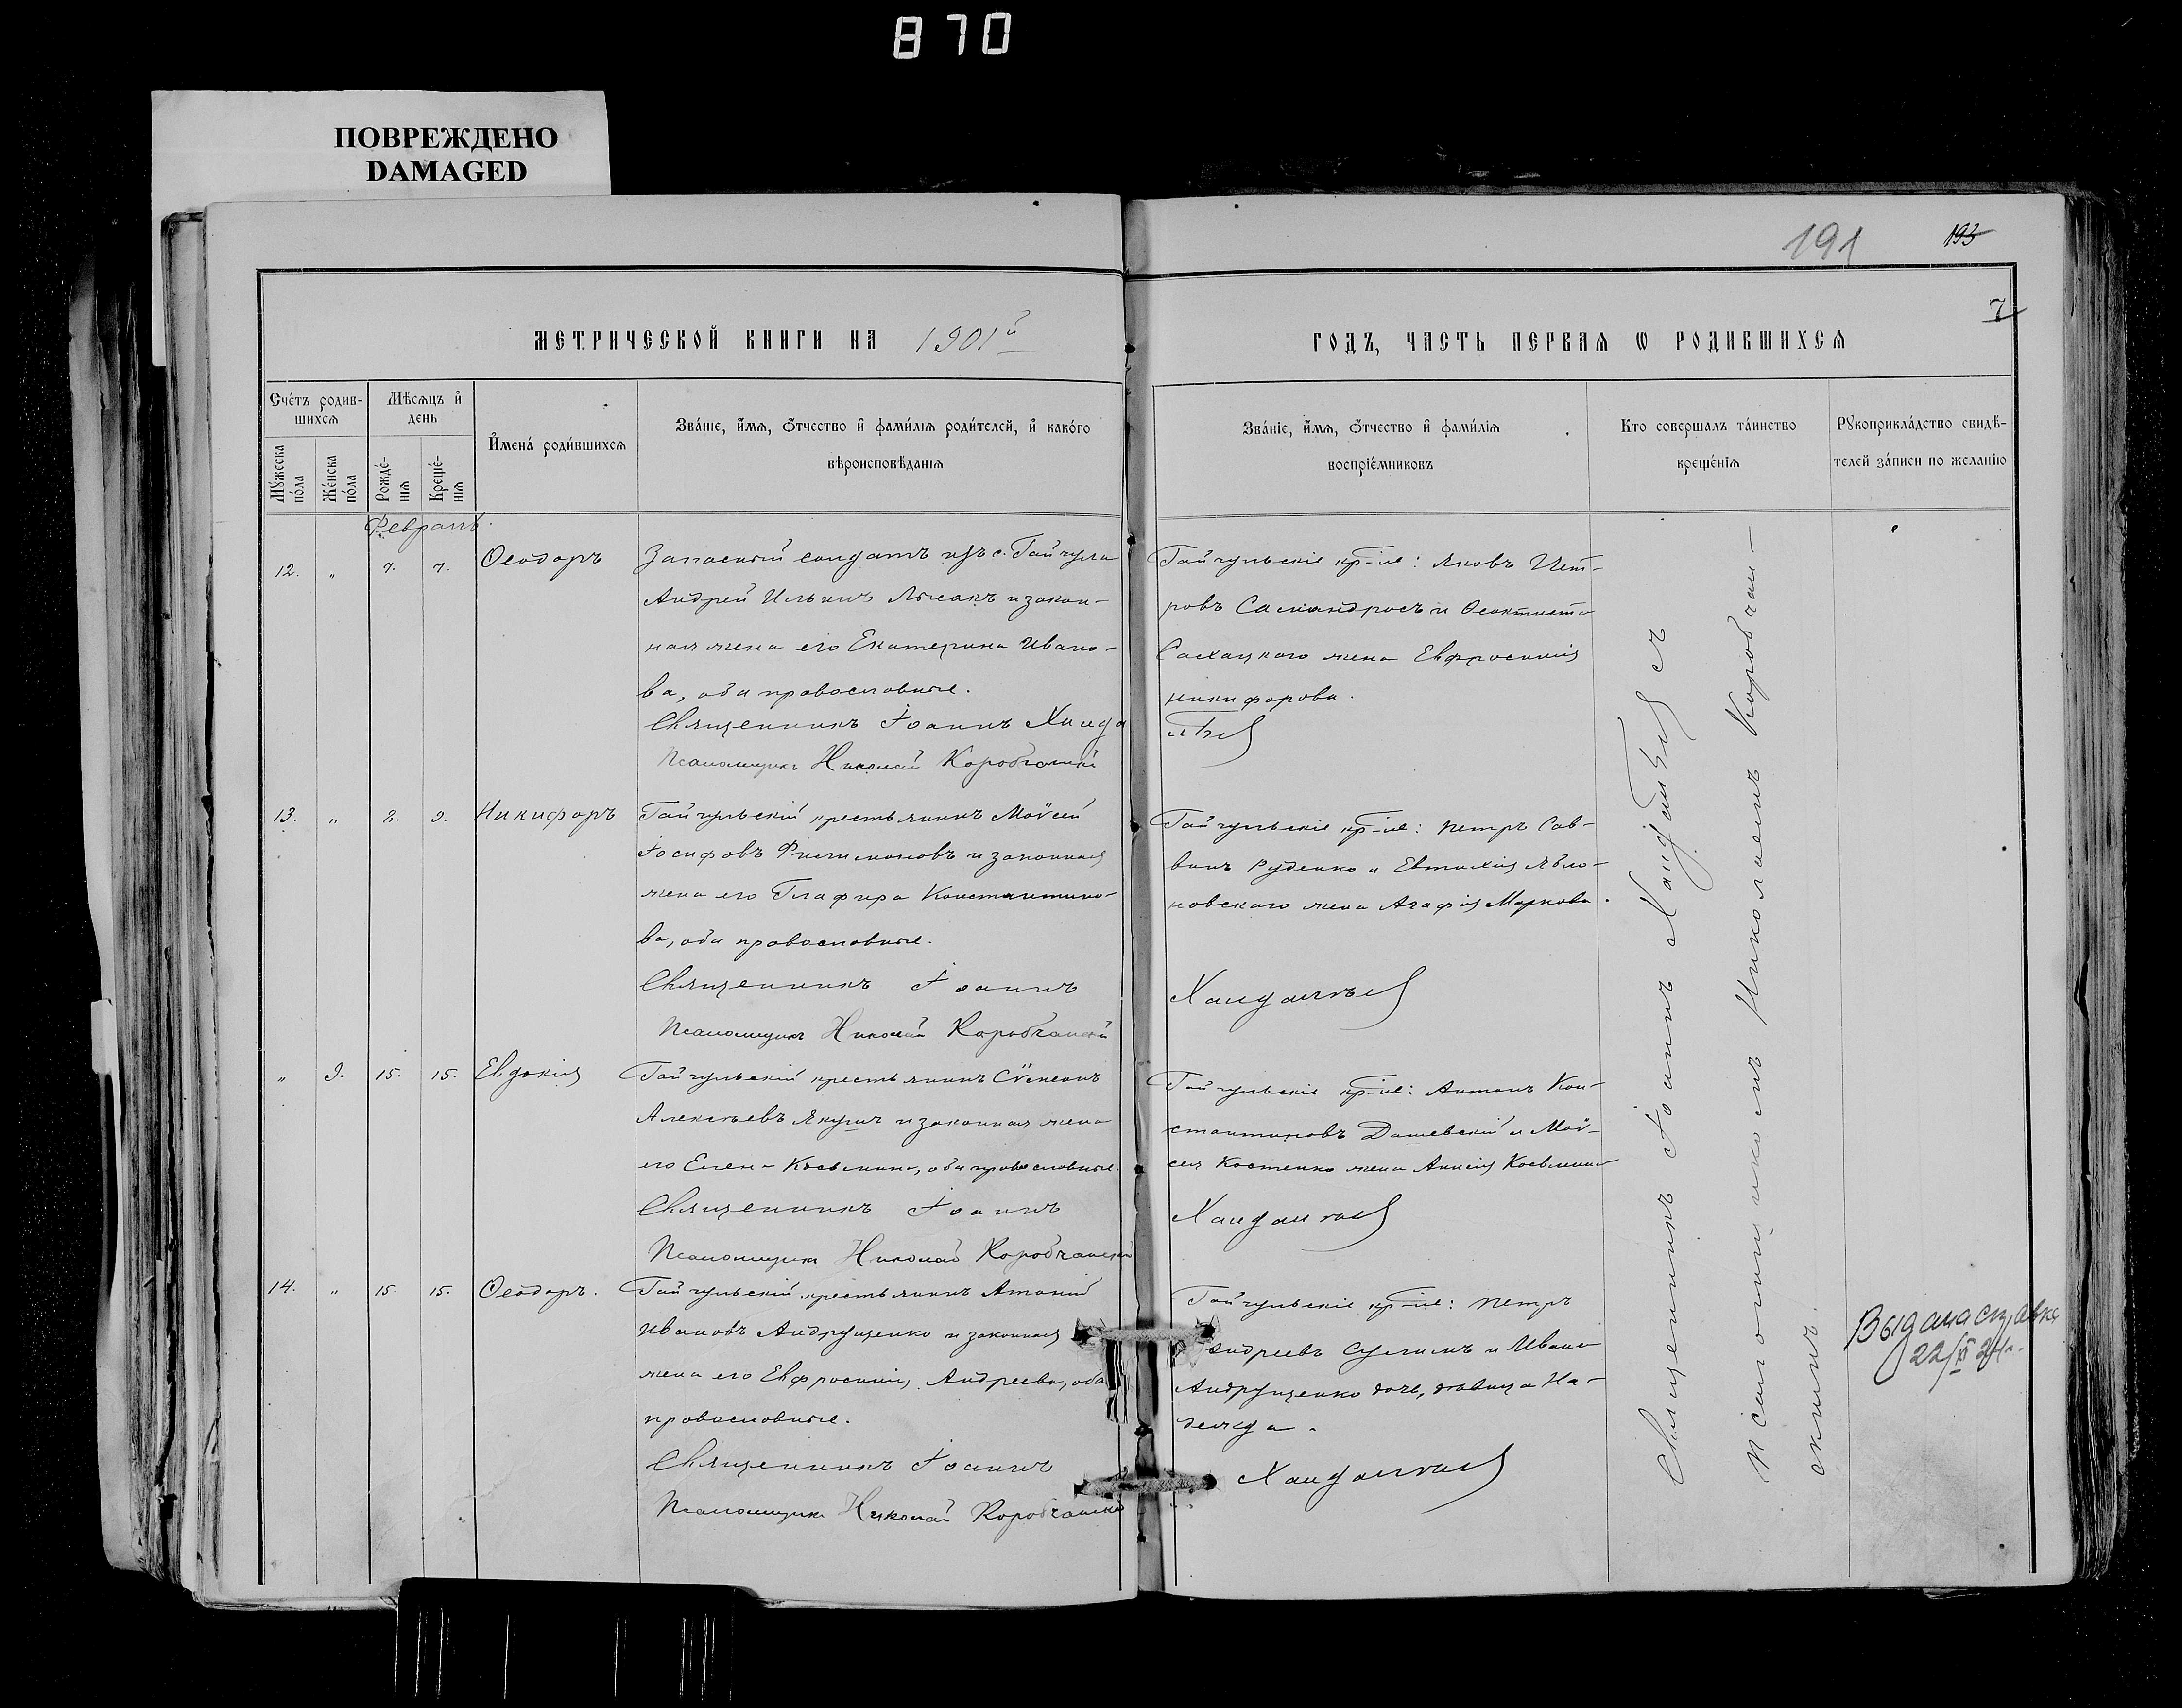 870
ПОВРЕЖДЕНО
DAMAGED
191
193
7
МЕТРИЧЕСКОЙ КНИГИ НА 1901й
ГОДЪ, ЧАСТЬ ПЕРВАЯ Ѡ РОДИВШИХСЯ
Счетъ родив-
шихся
Мужеска
пола
Женска
пола
Мѣсяцъ и
день
Рожде-
нія
Креще-
нія
Имена родившихся
Званіе, имя, отчество и фамилія родителей, и какого
вѣроисповѣданія
Званіе, имя, отчество и фамилія
воспріемниковъ
Кто совершалъ таинство
крещенія
Рукоприкладство свидѣ-
телей записи по желанію
Февраль.
12. " 7. 7. Ѳеодоръ
Запасный солдатъ изъ с. Гайчула
Андрей Ильинъ Лысакъ и закон-
ная жена его Екатерина Ивано-
ва, оба православные.
Священникъ Іоаннъ Ханда
Псаломщикъ Николай Коробчанскій
Гайчульскіе кр-не: Яковъ Пет-
ровъ и Ѳеоктиста
жена Евфросинія
Никифорова.
13. " 2. 9. Никифоръ
Гайчульскій крестьянинъ Моѵсей
Іосифовъ Филимоновъ и законная
жена его Глафира Константино-
ва, оба православные.
Священникъ Іоаннъ
Псаломщикъ Николай Коробчанскій
Гайчульскіе кр-не: Петръ Сав-
винъ Руденко и Евтихія Ябло-
новскаго жена Агафія Маркова.
" 9. 15. 15. Евдокія
Гайчульскій крестьянинъ Сѵмеонъ
Алексѣевъ и законная жена
его Елена Косьмина, оба православные.
Священникъ Іоаннъ
Псаломщикъ Николай Коробчанскій
Гайчульскіе кр-не: Антонъ Кон-
стантиновъ Дашевскій и Моѵ-
сея Костенко жена Анисія Косьмина
14. " 15. 15. Ѳеодоръ.
Гайчульскій крестьянинъ Антоній
Ивановъ Андрущенко и законная
жена его Евфросинія Андреева, оба
православные.
Священникъ Іоаннъ
Псаломщикъ Николай Коробчанскій
Гайчульскіе кр-не: Петръ
Андреевъ и Ивана
Андрущенко дочь, дѣвица На-
дежда.
Священникъ Іоаннъ съ
псаломщикомъ Николаемъ Коробчан-
скимъ.
Выдана справка
22/XI